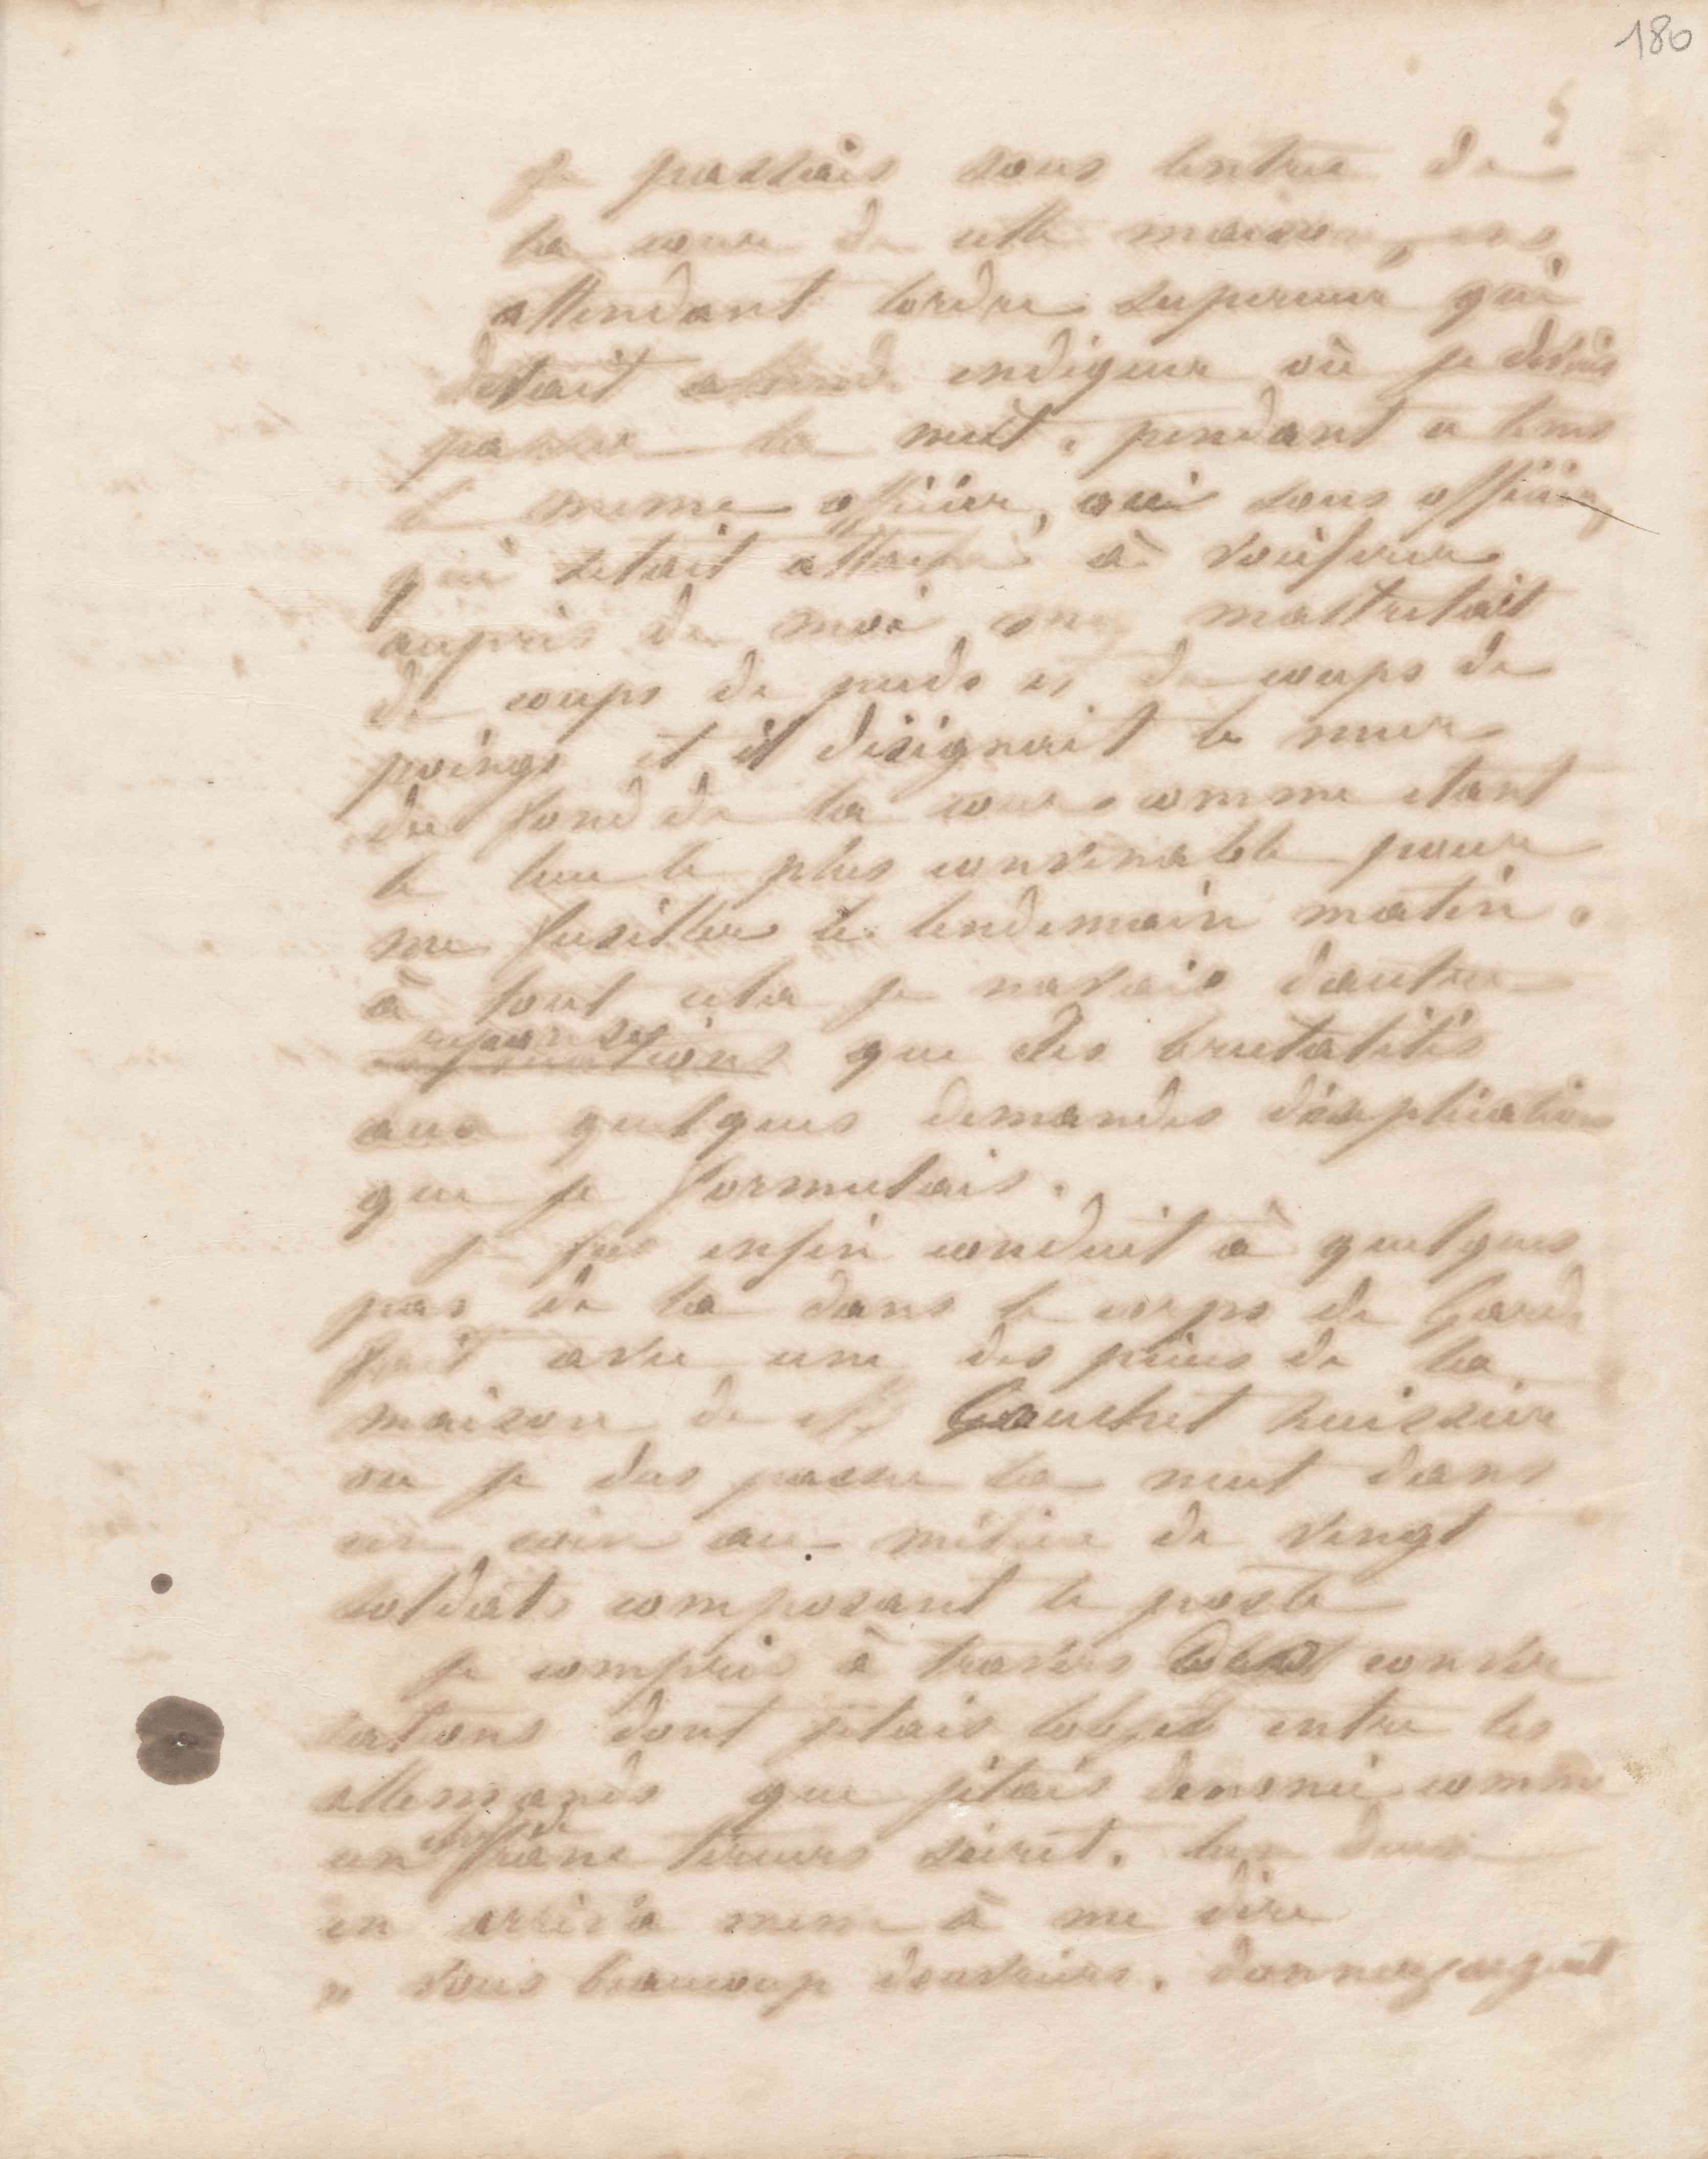 180
je passais sous lentree de
la cour de cette maison, en
attendant lordre superieur qui
devait indiquer où je devais
passer la nuit. pendant ce tems
le meme officier, oui sous officier,
qui setait attaché à vociferer
aupres de moi me maltretait
de coups de pieds et de coups de
poings et il désignait le mur
du fond de la cour comme etant
le lieu le plus convenable pour
me fusiller le lendemain matin.
à tout cela je navais dautre
reponse que des brutalités
aux quelques demandes déxplication
que je formulais.
je fus enfin conduit à quelques
pas de la dans le corps de Garde
fait avec une des pieces de la
maison de Mr Gauchet huissier
ou je dus passer la nuit dans
un coin au milieu de vingt
soldats composant le poste
je compris à travers conver
sations dont jetais lobjet entre les
allemands que jétais denoncé comme
un franc tireurs secret. lun deux
en arriva meme à me dire
" vous beaucoup douvriers. donnez argent